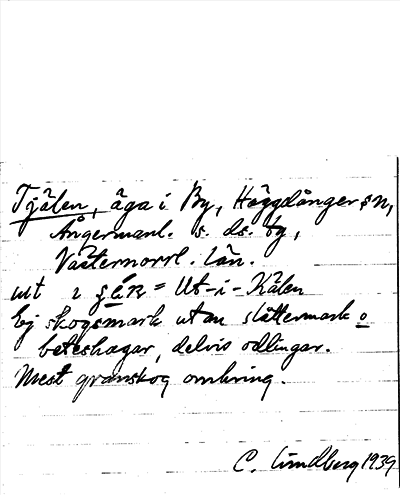 Tjälen, äga i By, Häggdånger sn,
Ångermanl. s. ds. tg,
Västernorrl. län.
= Ut-i-Kälen
Ej skogsmark utan slåttermark o
beteshagar, delvis odlingar.
Mest granskog omkring.
C. Lindberg 1939